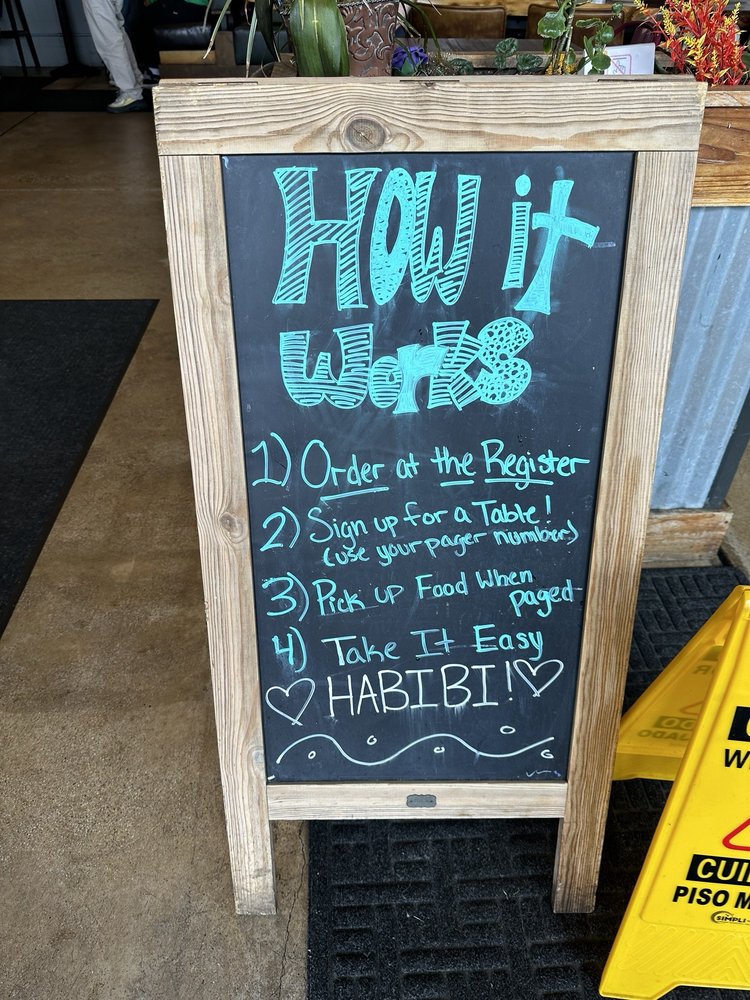 How it
Works
1) Order at the Register
2) Sign up for a Table!
(use your pager number)
3) Pick up Food When
paged
4) Take It Easy
♡ HABIBI! ♡
CUI
PISO M
SIMPLI-